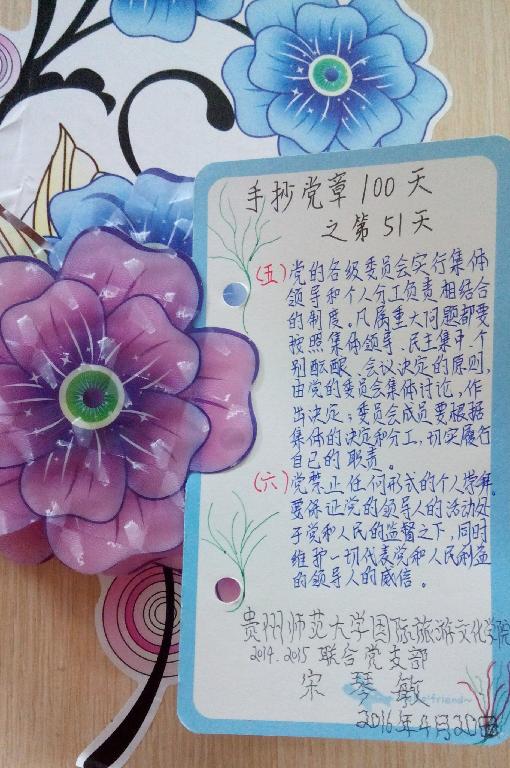 手抄党章100天
之第51天
(五)党的各级委员会实行集体
领导和个人分工负责相结合
的制度。凡属重大问题都要
按照集体领导、民主集中、个
别酝酿、会议决定的原则,
由党的委员会集体讨论,作
出决定;委员会成员要根据
集体的决定和分工,切实履行
自己的职责。
(六)党禁止任何形式的个人崇拜。
要保证党的领导人的活动处
于党和人民的监督之下,同时
维护一切代表党和人民利益
的领导人的威信。
贵州师范大学国际旅游文化学院
2014.2015联合党支部
宋琴敏
friend~
2016年4月20日